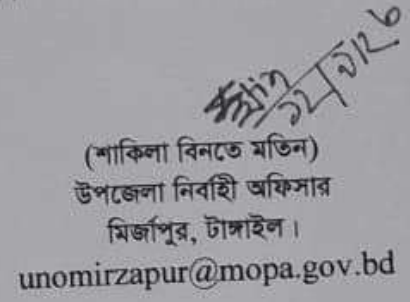 ২২/১/২৬
(শাকিলা বিনতে মতিন)
উপজেলা নির্বাহী অফিসার
মির্জাপুর, টাঙ্গাইল।
unomirzapur@mopa.gov.bd